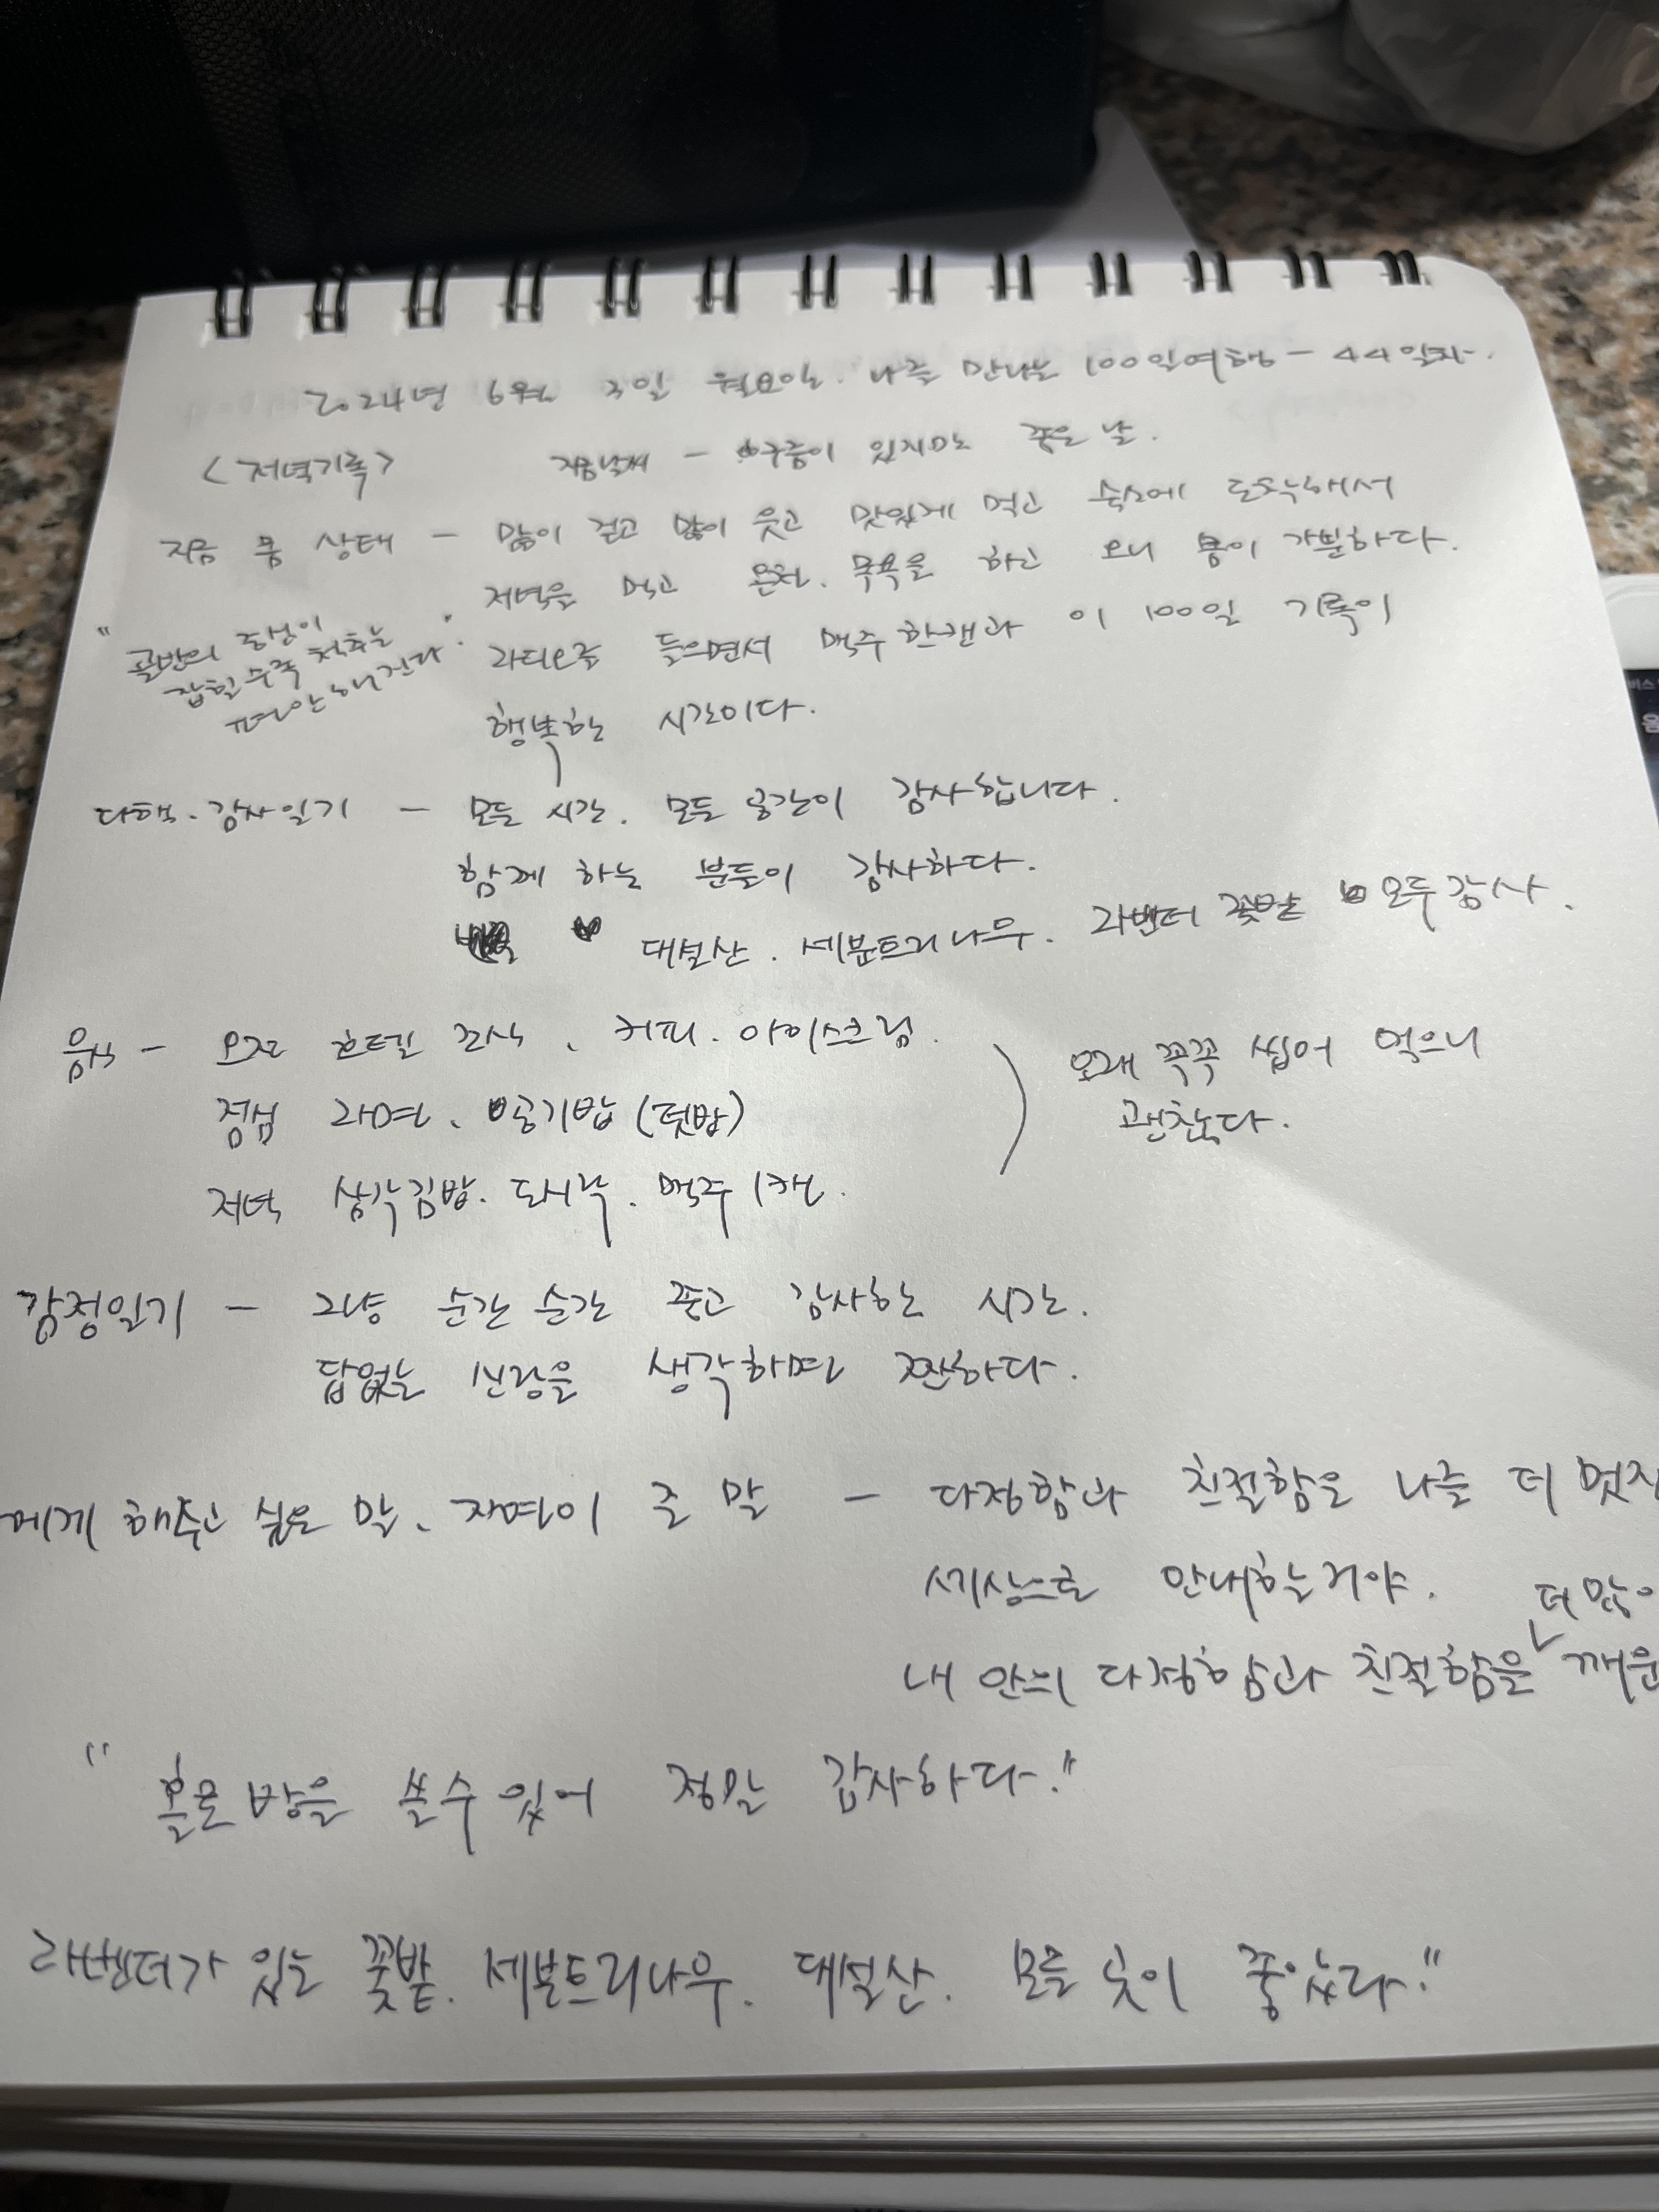 2024년 6월 3일 월요일. 나를 만나는 100일여행 - 44일차.
<저녁기록> 지금날씨 - 구름이 있지만 좋은 날.
지금 몸 상태 - 많이 걷고 많이 웃고 맛있게 먹고 숙소에 도착해서
저녁을 먹고 온천. 목욕을 하고 오니 몸이 가뿐하다.
"골반의 중심이
잡힐수록 척추는
편안해진다."
라디오를 들으면서 맥주한캔과 이 100일 기록이
행복한 시간이다.
다행.감사일기 - 모든 시간. 모든 공간이 감사합니다.
함께 하는 분들이 감사하다.
대설산. 세븐트리나무. 라벤더 꽃밭 모두감사.
음식 - 오전 호텔 조식. 커피. 아이스크림.
점심 라면. 공기밥(덧밥)
저녁 삼각김밥. 도시락. 맥주 1캔.
오래 꼭꼭 씹어 먹으니
괜찮다.
감정일기 - 그냥 순간순간 좋고 감사한 시간.
답없는 신랑을 생각하면 짠하다.
에게 해주고 싶은 말. 자연이 준 말 - 다정함과 친절함은 나를 더 멋진
세상으로 안내하는거야.
더 많이
내 안의 다정함과 친절함을 깨운
"홀로 방을 쓸수있어 정말 감사하다."
라벤더가 있는 꽃밭. 세븐트리나무. 대설산. 모든 곳이 좋았다."